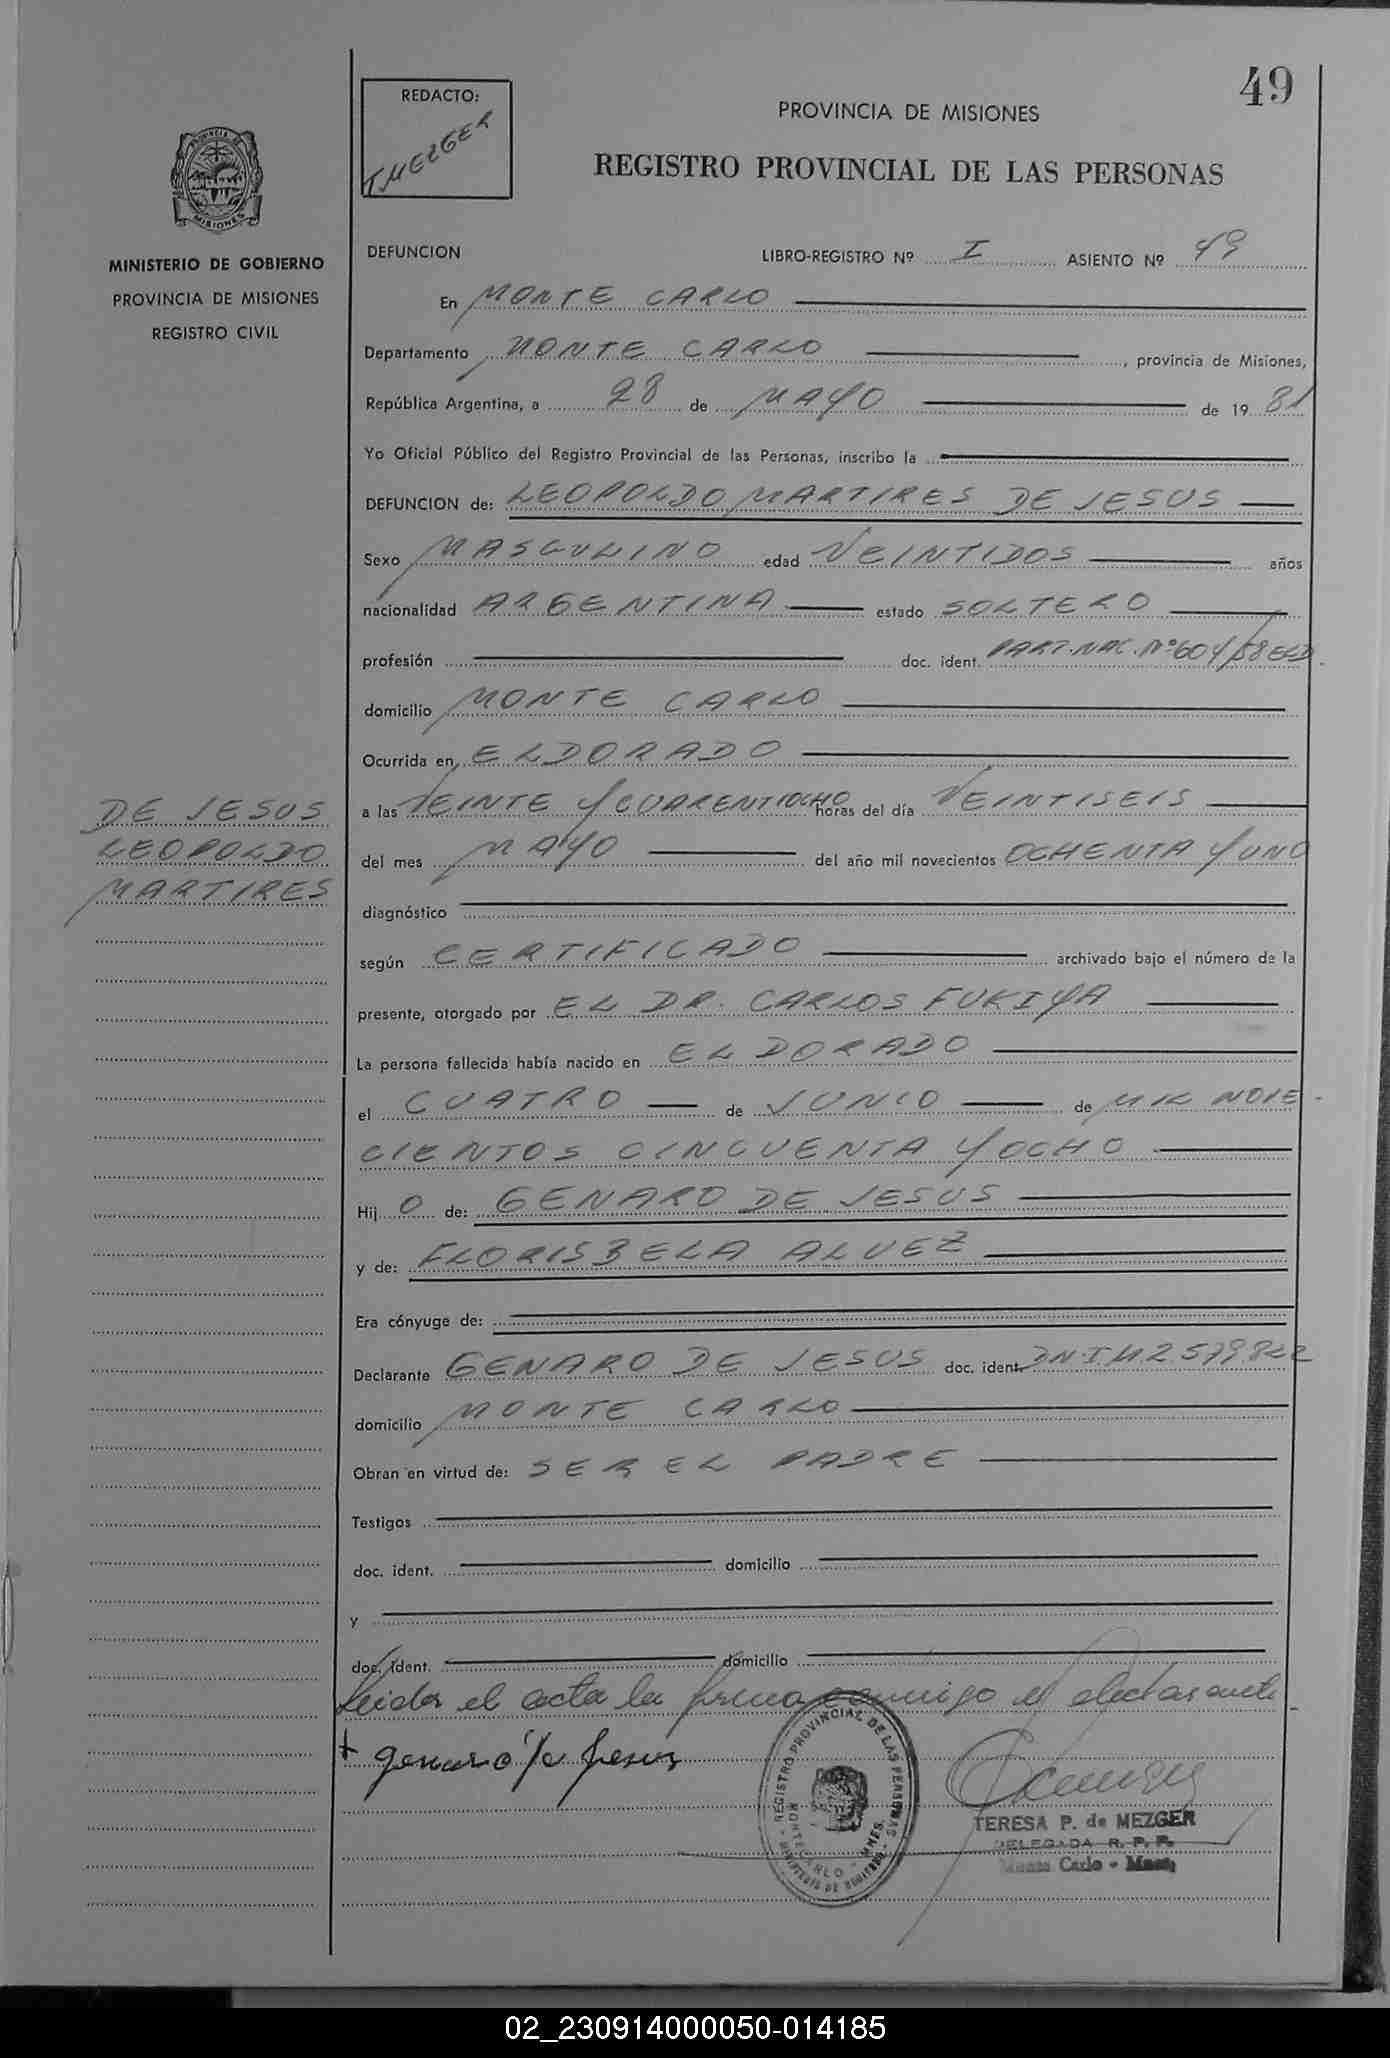 49
REDACTO:
T. MEZGER
PROVINCIA DE MISIONES
REGISTRO PROVINCIAL DE LAS PERSONAS
PROVINCIA DE
MISIONES
MINISTERIO DE GOBIERNO
PROVINCIA DE MISIONES
REGISTRO CIVIL
DEFUNCION LIBRO-REGISTRO Nº I ASIENTO Nº 49
En MONTE CARLO
Departamento MONTE CARLO, provincia de Misiones,
República Argentina, a 28 de MAYO de 19 81
Yo Oficial Público del Registro Provincial de las Personas, inscribo la
DEFUNCION de: LEOPOLDO MARTIRES DE JESUS
Sexo MASCULINO edad VEINTIDOS años
nacionalidad ARGENTINA estado SOLTERO
profesión doc. ident. PART. NAC. Nº 604/58 ELD
domicilio MONTE CARLO
Ocurrida en ELDORADO
a las VEINTE Y CUARENTIOCHO horas del día VEINTISEIS
del mes MAYO del año mil novecientos OCHENTA Y UNO
DE JESUS
LEOPOLDO
MARTIRES
diagnóstico
según CERTIFICADO archivado bajo el número de la
presente, otorgado por EL DR. CARLOS FUKIYA
La persona fallecida había nacido en ELDORADO
el CUATRO de JUNIO de MIL NOVE-
CIENTOS CINCUENTA Y OCHO
Hij O de: GENARO DE JESUS
y de: FLORISBELA ALVEZ
Era cónyuge de:
Declarante GENARO DE JESUS doc. ident. DNI
domicilio MONTE CARLO
Obran en virtud de: SER EL PADRE
Testigos
doc. ident. domicilio
y
doc. ident. domicilio
Leida el acta la firma conmigo el declarante.
+ genaro de Jesus
REGISTRO PROVINCIAL DE LAS PERSONAS
MONTECARLO - MNES.
TERESA P. de MEZGER
DELEGADA R. P. P.
Monte Carlo - Mnes
02_230914000050-014185